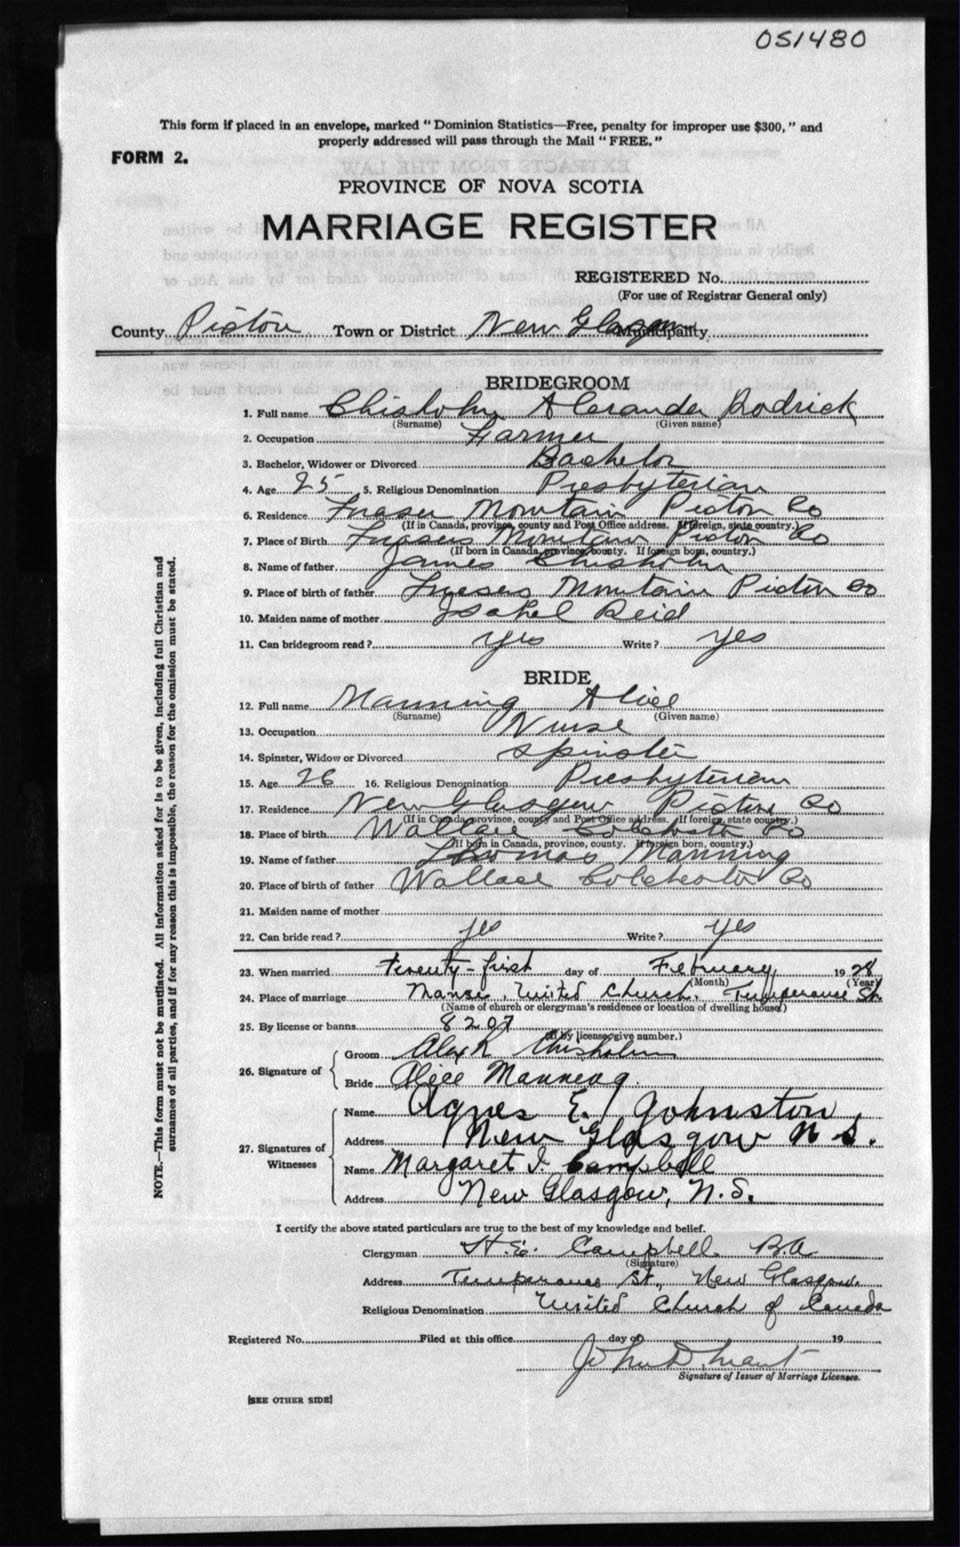 051480
This form if placed in an envelope, marked "Dominion Statistics—Free, penalty for improper use $300," and
properly addressed will pass through the Mail "FREE."
FORM 2.
PROVINCE OF NOVA SCOTIA
MARRIAGE REGISTER
REGISTERED No.
(For use of Registrar General only)
County Pictou Town or District New Glasgow Municipality
BRIDEGROOM
1. Full name Chisholm Alexander Rodrick
(Surname) (Given name)
2. Occupation Farmer
3. Bachelor, Widower or Divorced Bachelor
4. Age 25 5. Religious Denomination Presbyterian
6. Residence Fraser Mountain Pictou Co
(If in Canada, province, county and Post Office address. If foreign, state country.)
7. Place of Birth Frasers Mountain Pictou Co
(If born in Canada, province, county. If foreign born, country.)
8. Name of father James Chisholm
9. Place of birth of father Frasers Mountain Pictou Co
10. Maiden name of mother Isabel Reid
11. Can bridegroom read? yes Write? yes
BRIDE
12. Full name Manning Alice
(Surname) (Given name)
13. Occupation Nurse
14. Spinster, Widow or Divorced Spinster
15. Age 26 16. Religious Denomination Presbyterian
17. Residence New Glasgow Pictou Co
(If in Canada, province, county and Post Office address. If foreign, state country.)
18. Place of birth Wallace Colchester Co
(If born in Canada, province, county. If foreign born, country.)
19. Name of father Thomas Manning
20. Place of birth of father Wallace Colchester Co
21. Maiden name of mother
22. Can bride read? yes Write? yes
23. When married twenty-first day of February 1928
(Month) (Year)
24. Place of marriage Manse, United Church, Temperance St.
(Name of church or clergyman's residence or location of dwelling house)
25. By license or banns 8207
(If by license, give number.)
26. Signature of Groom Alex R Chisholm
Bride Alice Manning.
27. Signatures of Witnesses Name Agnes E. Johnston
Address New Glasgow N S.
Name Margaret I. Campbell
Address New Glasgow, N.S.
I certify the above stated particulars are true to the best of my knowledge and belief.
Clergyman H.E. Campbell. B.A
(Signature)
Address Temperance St., New Glasgow.
Religious Denomination United Church of Canada
Registered No. Filed at this office day of 19
John D.
Signature of Issuer of Marriage Licenses.
[SEE OTHER SIDE]
NOTE.—This form must not be mutilated. All information asked for is to be given, including full Christian and
surnames of all parties, and if for any reason this is impossible, the reason for the omission must be stated.